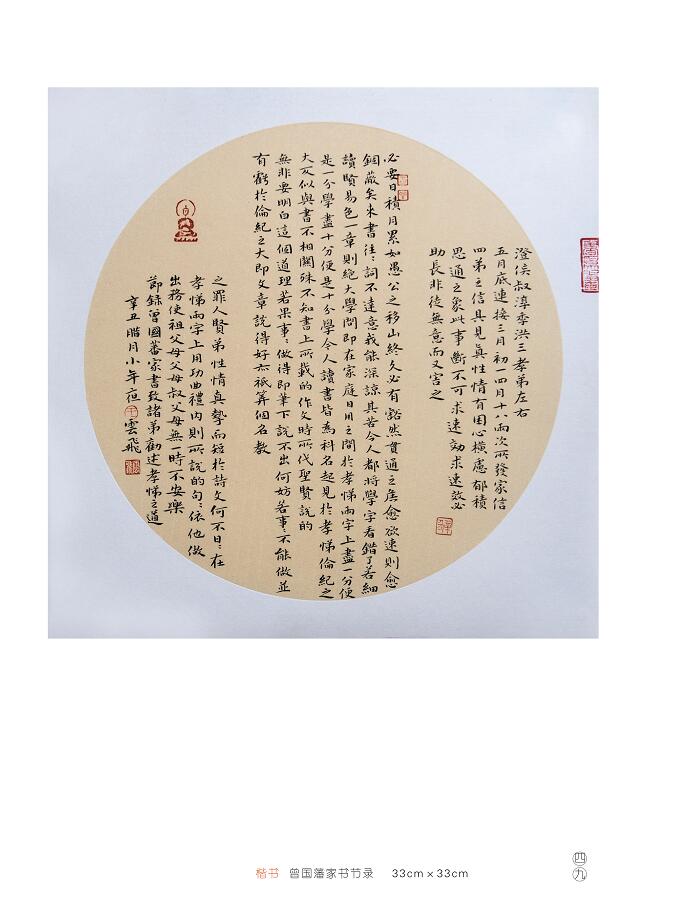 澄侯叔淳季洪三孝弟左右
五月底連接三月初一四月十八兩次所發家信
四弟之信具見真性情有困心橫慮郁積
思通之象此事斷不可求速効求速效必
助長非徒無意而又害之
必要日積月累如愚公之移山終久必有豁然貫通之候愈欲速則愈
錮蔽矣來書往:詞不達意我能深諒其苦今人都將學字看錯了若細
讀賢易色一章則絕大學問即在家庭日用之間於孝悌兩字上盡一分便
是一分學盡十分便是十分學今人讀書皆為科名起見於孝悌倫紀之
大反似與書不相關殊不知書上所載的作文時所代聖賢說的
無非要明白這個道理若果事:做得即筆下說不出何妨若事:不能做並
有虧於倫紀之大即文章說得好亦祇算個名教
之罪人賢弟性情真摯而短於詩文何不日:在
孝悌兩字上用功曲禮內則所說的句:依他做
出務使祖父母父母叔父母無一時不安樂
節錄曾國蕃家書致諸弟勸述孝悌之道
辛丑腊月小年夜 雲飛
楷书 曾国藩家书节录 33cm×33cm
四九